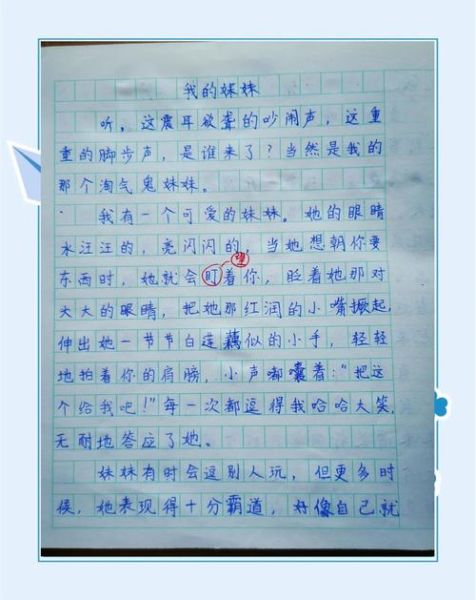 我的妹妹
听，这震耳欲聋的吵闹声，这重
重的脚步声，是谁来了？当然是我的
那个淘气鬼妹妹。
我有一个可爱的妹妹。她的眼睛
水汪汪的，亮闪闪的，当她想朝你要
望
东西时，她就会盯着你，眨着她那对
大大的眼睛，把她那红润的小嘴撅起，
伸出她一节节白莲藕似的小手，轻轻
地拍着你的肩膀，小声嘟囊着：“把这
个给我吧！”每一次都逗得我哈哈大笑，
无耐地答应了她。
妹妹有时会逗别人玩，但更多时
候，她表现得十分霸道，好像自己就